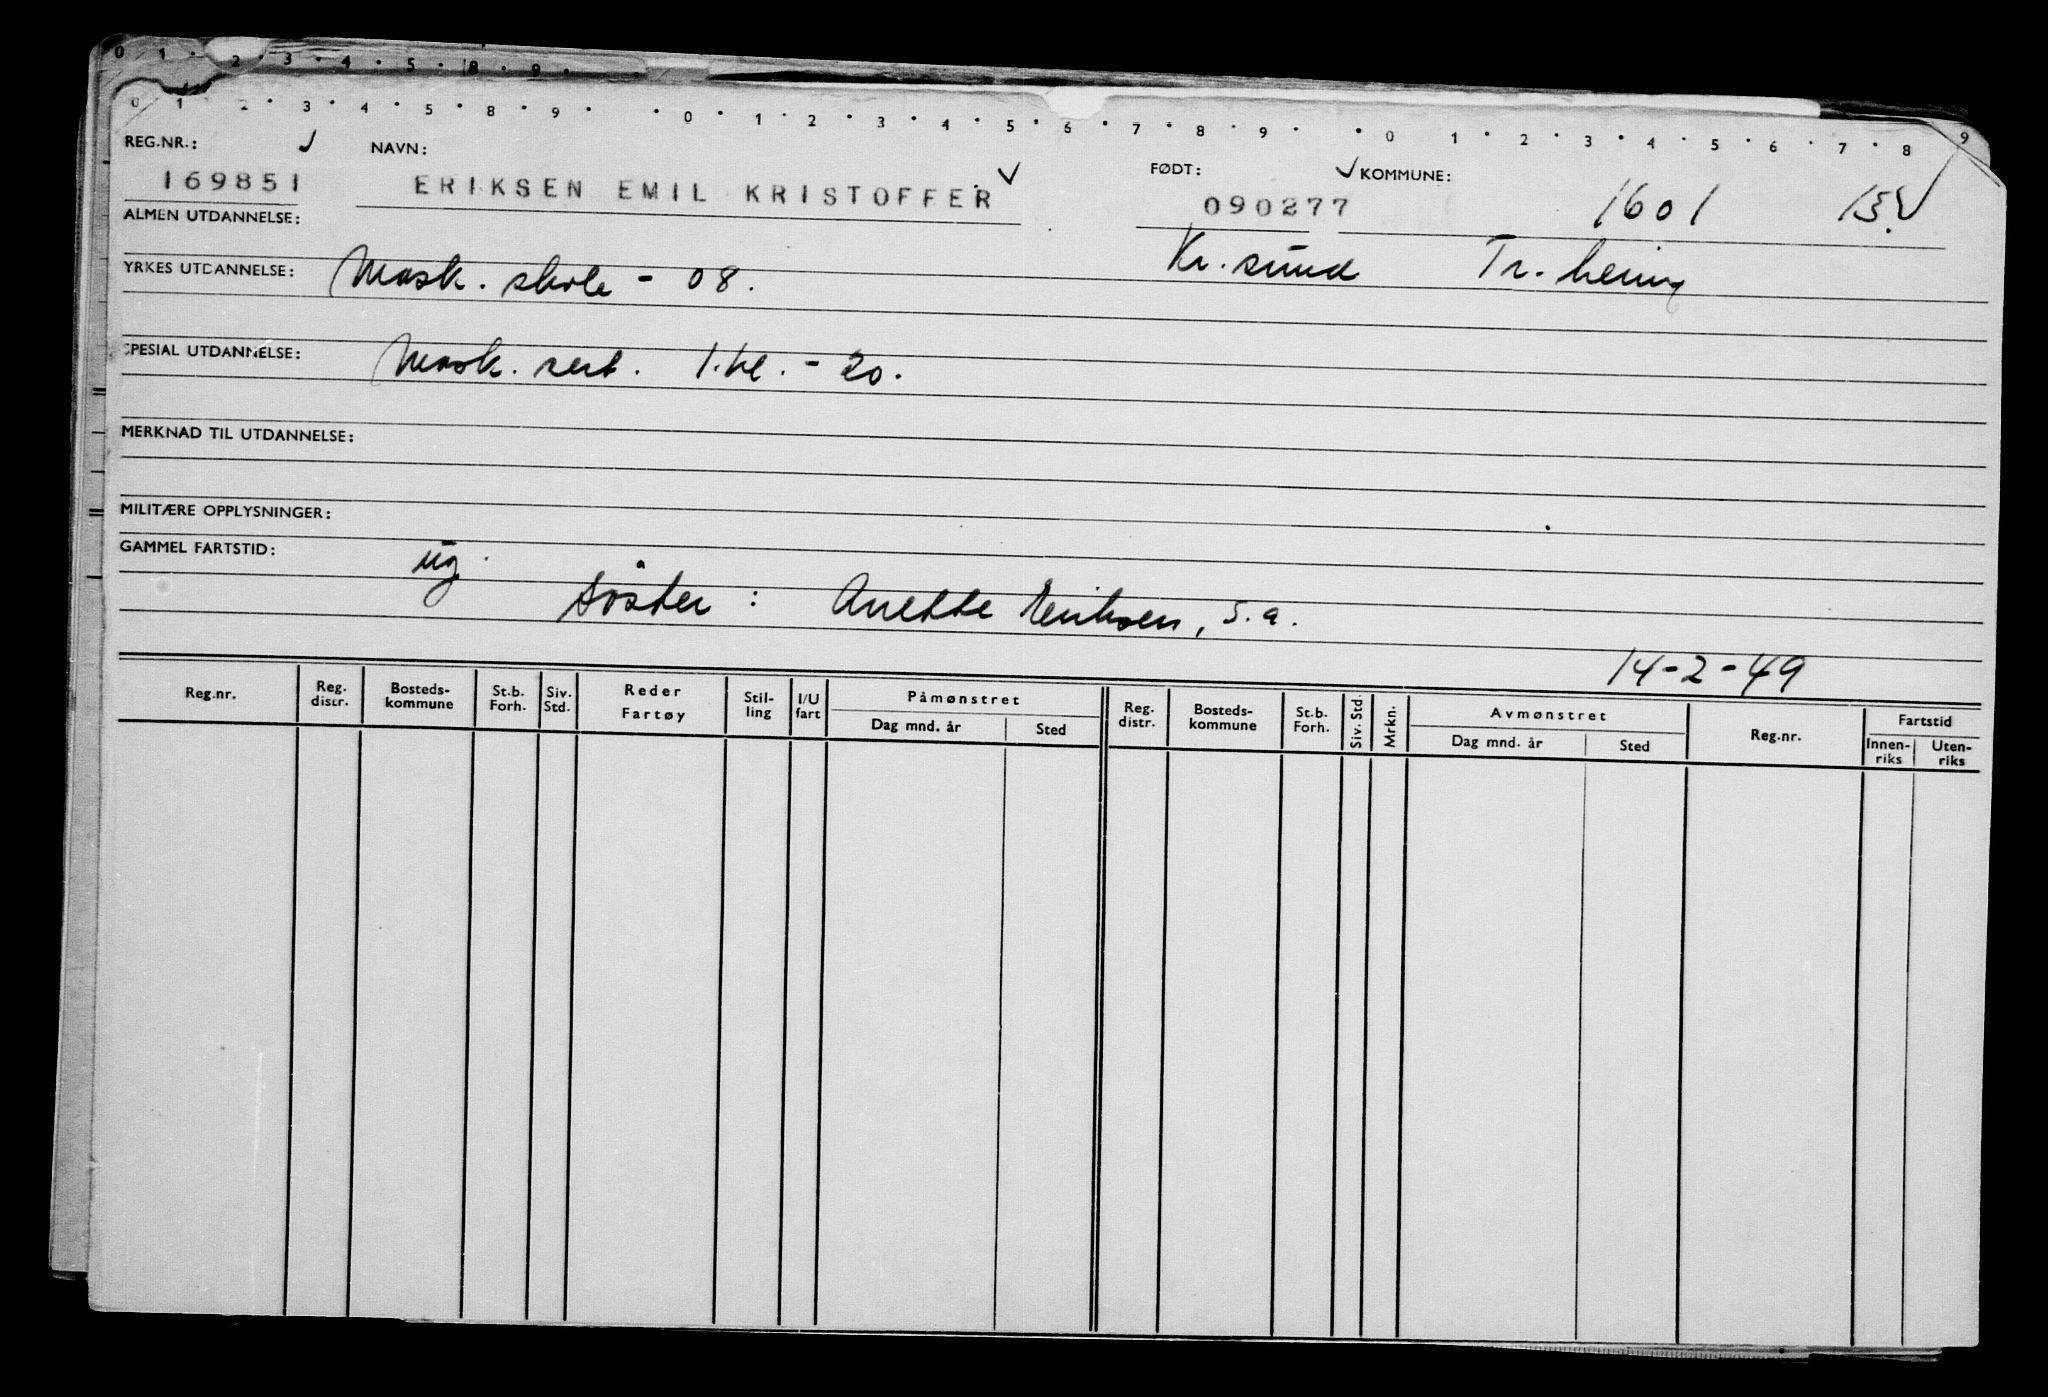 0 1 · 2 · 3 · 4 · 5 · 8 · 9 ·
0 1 · 2 · 3 · 4 · 5 · 8 · 9 · · 0 · 1 · 2 · 3 · 4 · 5 · 6 · 7 · 8 · 9 · · 0 1 · 2 · 3 · 4 · 5 · 6 · 7 · 8 9
REG.NR.: NAVN: FØDT: KOMMUNE:
169851 ERIKSEN EMIL KRISTOFFER 090277 1601
ALMEN UTDANNELSE:
Kr.sund Tr.heim
YRKES UTDANNELSE: Mask. skole - 08.
SPESIAL UTDANNELSE: Mask. sert. 1.kl. - 20.
MERKNAD TIL UTDANNELSE:
MILITÆRE OPPLYSNINGER:
GAMMEL FARTSTID: ug.
søster : Anette Eriksen, s.a.
14-2-49
Reg.nr. Reg. distr. Bosteds- kommune St.b. Forh. Siv. Std. Reder Fartøy Stil- ling I/U fart Påmønstret Dag mnd. år Sted Reg. distr. Bosteds- kommune St.b. Forh. Siv. Std. Mrkn. Avmønstret Dag mnd. år Sted Reg.nr. Fartstid Innen- riks Uten- riks